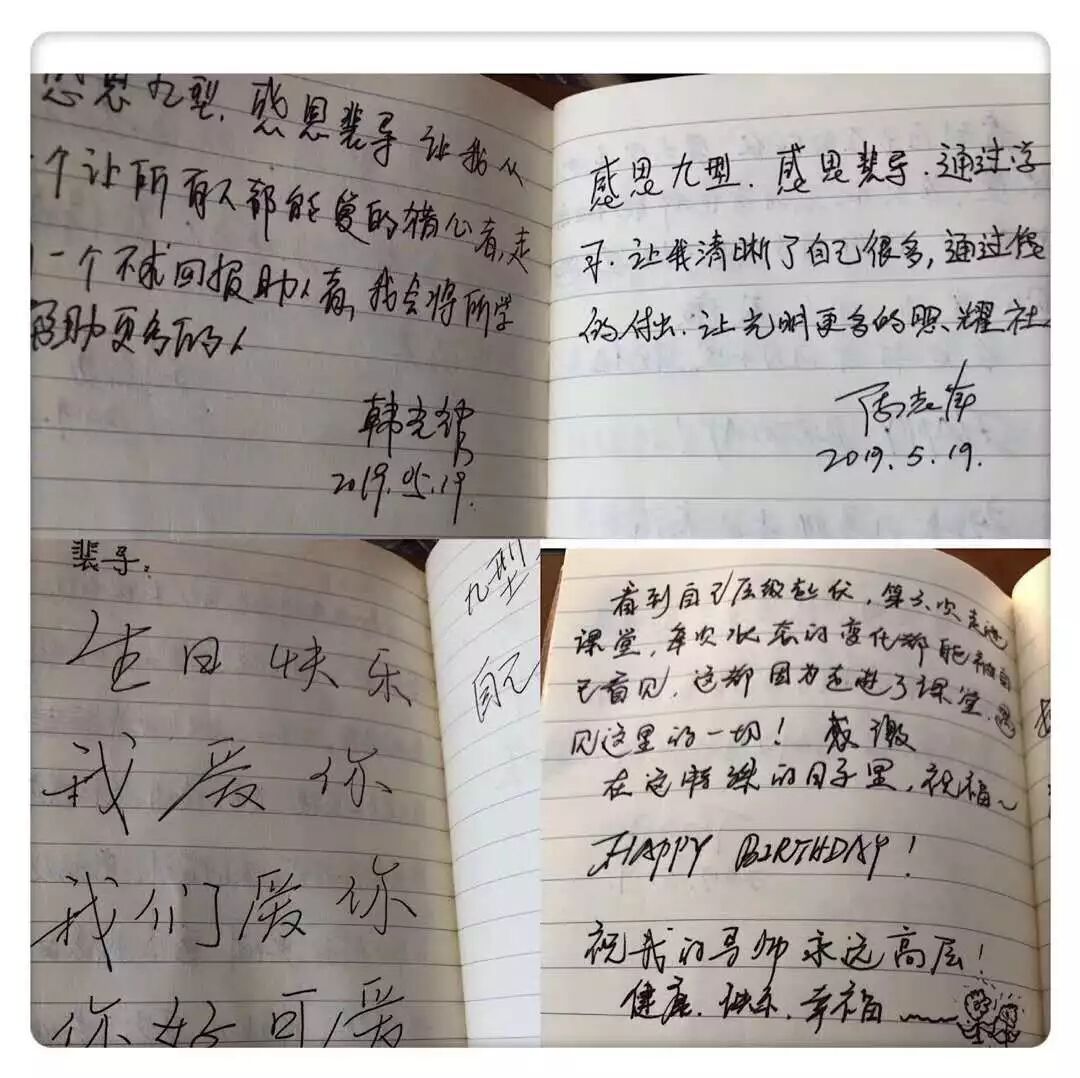 感恩九型，感恩裴导 让我从
个让所有人都能爱的猎心者，走
一个不求回报助人者，我会将所学
帮助更多的人
韩光
2019.05.19.
感恩九型．感恩裴导．通过学
习．让我清晰了自己很多，通过
的付出．让光明更多的照耀社
2019.5.19.
裴导：
生日快乐
我爱你
我们爱你
你好可爱
九型
自己
看到自己层级起伏，第六次走进
课堂，每次状态的变化都能被自
己看见．这都因为走进了课堂．遇
见这里的一切！感激
在这特殊的日子里，祝福~
HAPPY BIRTHDAY!
祝我的导师永远高层！
健康．快乐．幸福